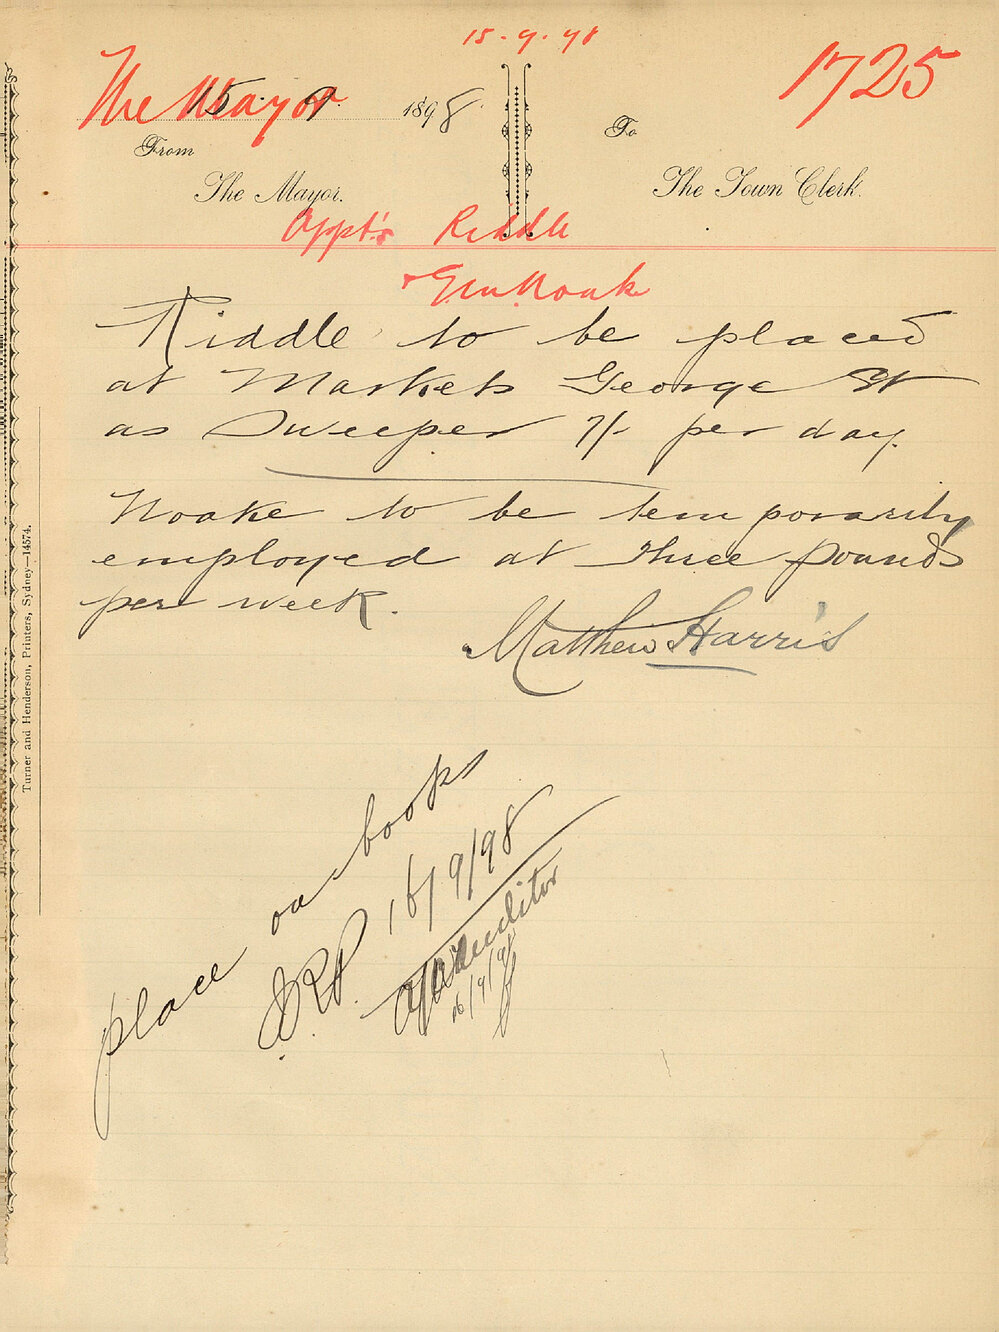 15.9.98
The Mayor 1725
15. 9. 1898.
From To
The Mayor. The Town Clerk.
Appt's Riddle
Riddle to be placed
at Markets George St
as Sweeper 7/- per day.
Noake to be temporarily
employed at three pounds
per week.
Matthew Harris
place on books
16/9/98
Auditor
16/9/98
Turner and Henderson, Printers, Sydney—14574.